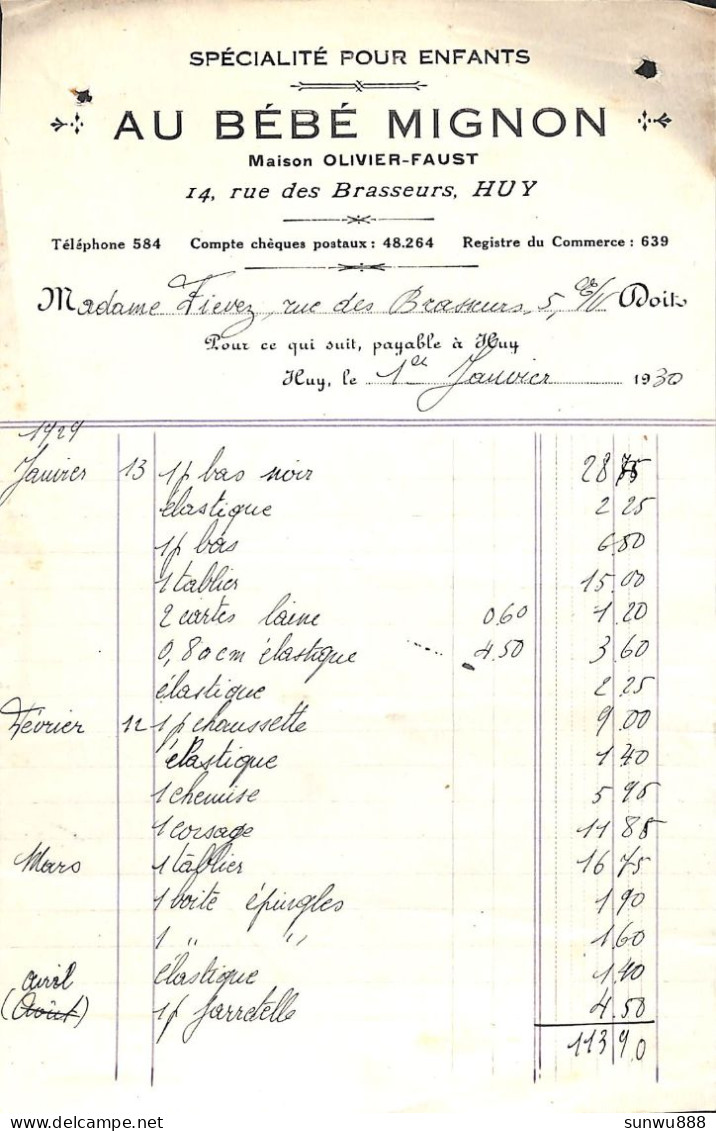 SPÉCIALITÉ POUR ENFANTS
AU BÉBÉ MIGNON
Maison OLIVIER-FAUST
14, rue des Brasseurs, HUY
Téléphone 584 Compte chèques postaux : 48.264 Registre du Commerce : 639
Madame Fievez, rue des Brasseurs, 5, Doit
Pour ce qui suit, payable à Huy
Huy, le 1er Janvier 1930
1929
Janvier 13 1p bas noir 28 75
élastique 2 25
1p bas 6.50
1 tablier 15.00
2 cartes laine 0.60 1.20
0,80cm élastique 4.50 3.60
élastique 2.25
Février 12 1p chaussette 9.00
élastique 1.40
1 chemise 5.95
1 corsage 11.85
Mars 1 tablier 16.75
1 boite épingles 1.90
1 " " 1.60
avril élastique 1.40
(Août) 1p Jarretelle 4.50
113 9.0
sunwu888